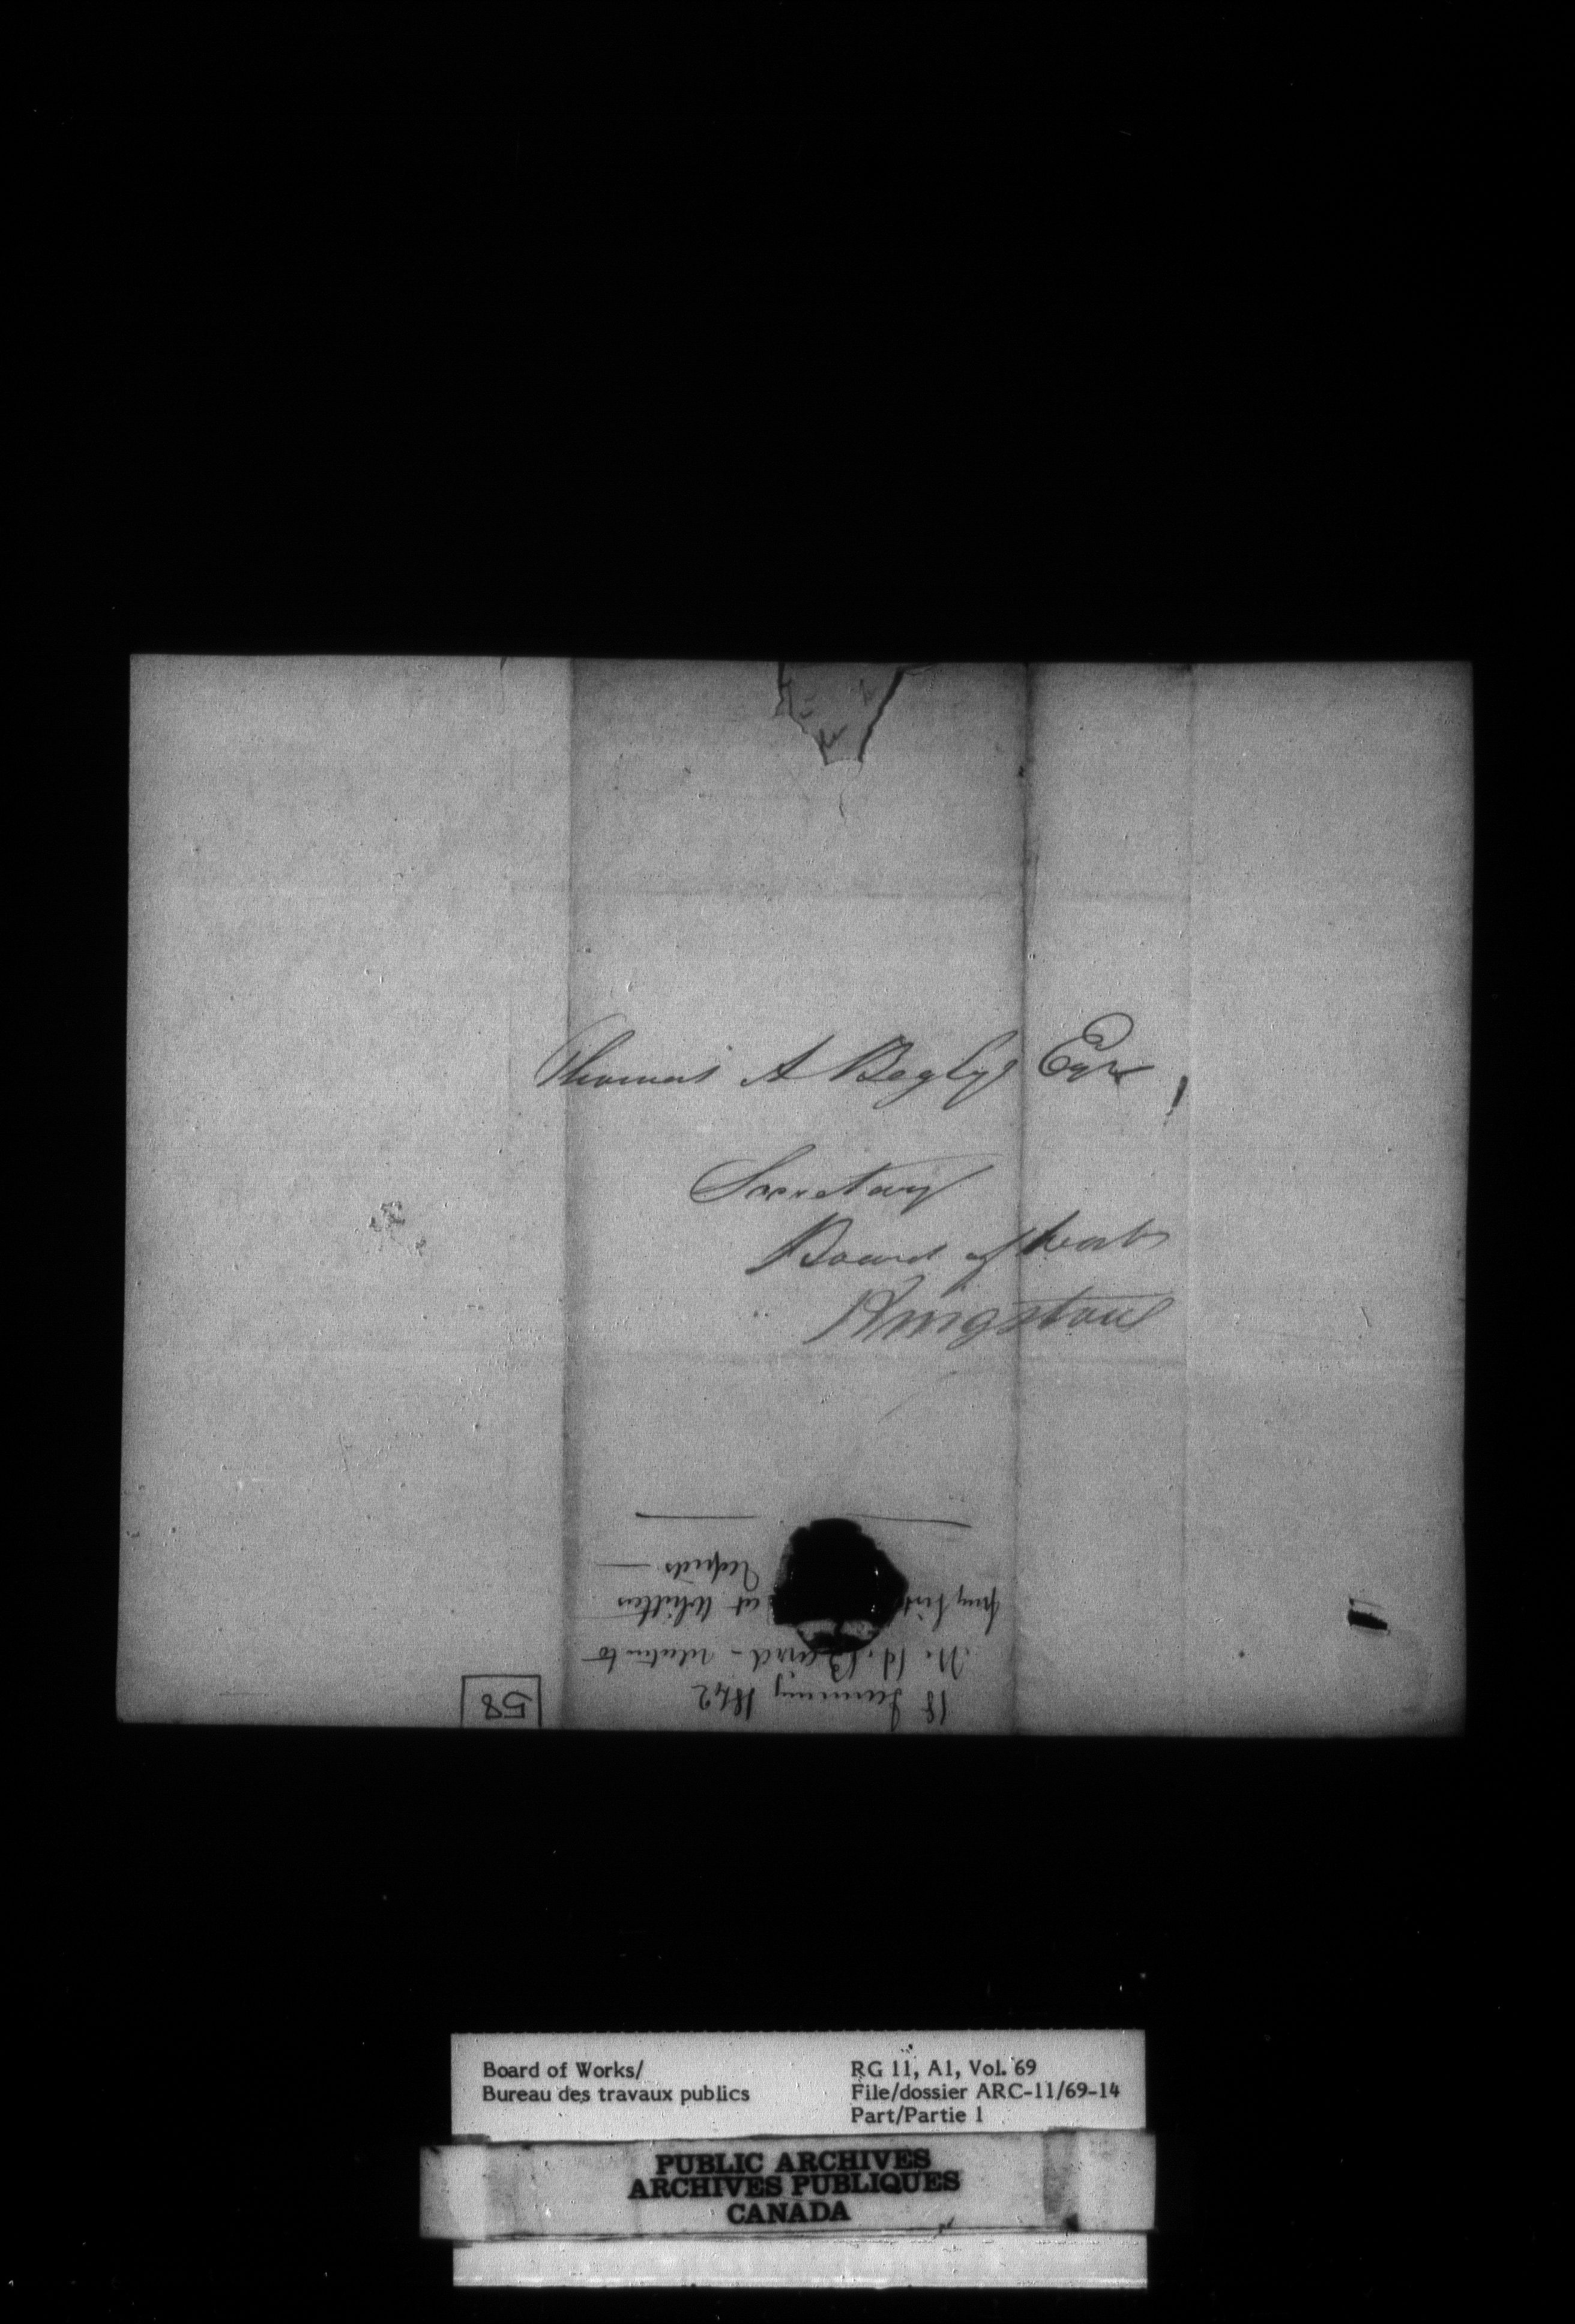 Thomas A Begly Esqr
Secretary
Board of Works
Kingston
58
18 January 1842
N. H. Baird - relative to
at Whitlas
Rapids
Board of Works/
Bureau des travaux publics
RG 11, A1, Vol. 69
File/dossier ARC-11/69-14
Part/Partie 1
PUBLIC ARCHIVES
ARCHIVES PUBLIQUES
CANADA